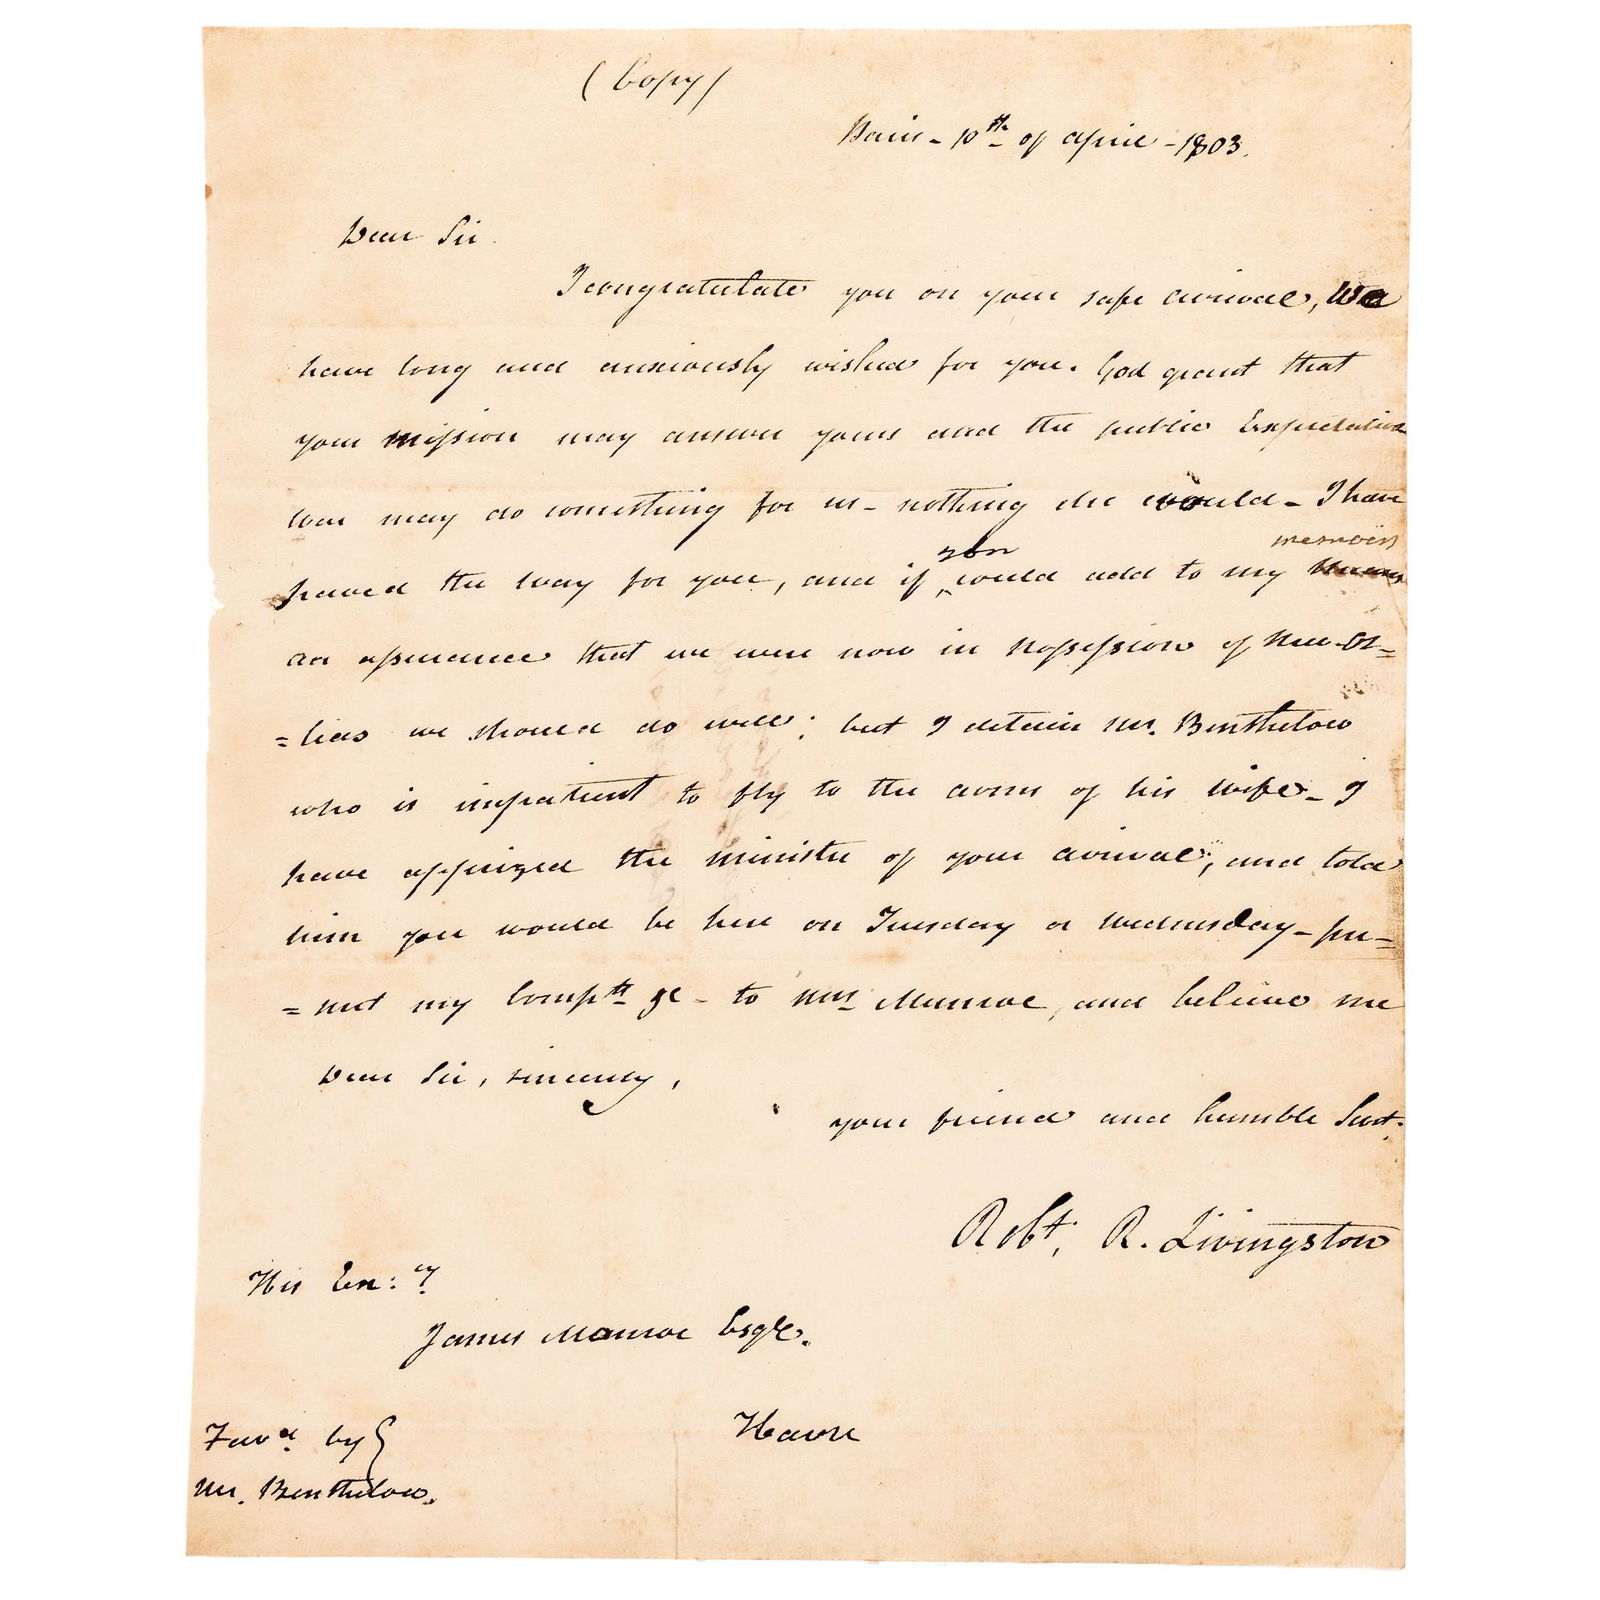 (Copy)
Paris - 10th of april - 1803.
Dear Sir.
I congratulate you on your safe arrival, We
have long and anxiously wished for you. God grant that
your mission may answer yours and the public Expectation
War may do something for us - nothing else would - I have
paved the way for you, and if you could add to my memoirs
an assurance that we were now in possession of New-Or=
=lians we should do well; but I detain Mr. Benthelow
who is impatient to fly to the arms of his wife - I
have apprized the minister of your arrival; and told
him you would be here on Tuesday or Wednesday - pre=
=sent my Compts &c - to Mrs Munroe, and believe me
Dear Sir, sincerely,
your friend and humble Servt.
Robt. R. Livingston
His Ex:cy
James Monroe Esqre.
Havre
Favd by
Mr. Benthelow.